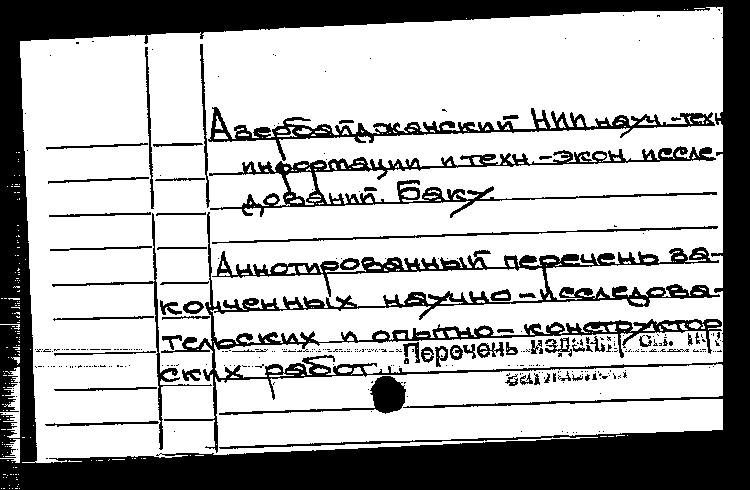 Азербайджанский НИИ науч.-техн
информации и техн.-экон. иссле-
дований. Баку.
Аннотированный перечень за-
конченных научно-исследова-
тельских и опытно-конструктор
ских работ...
Перечень издани см. п
заглавием